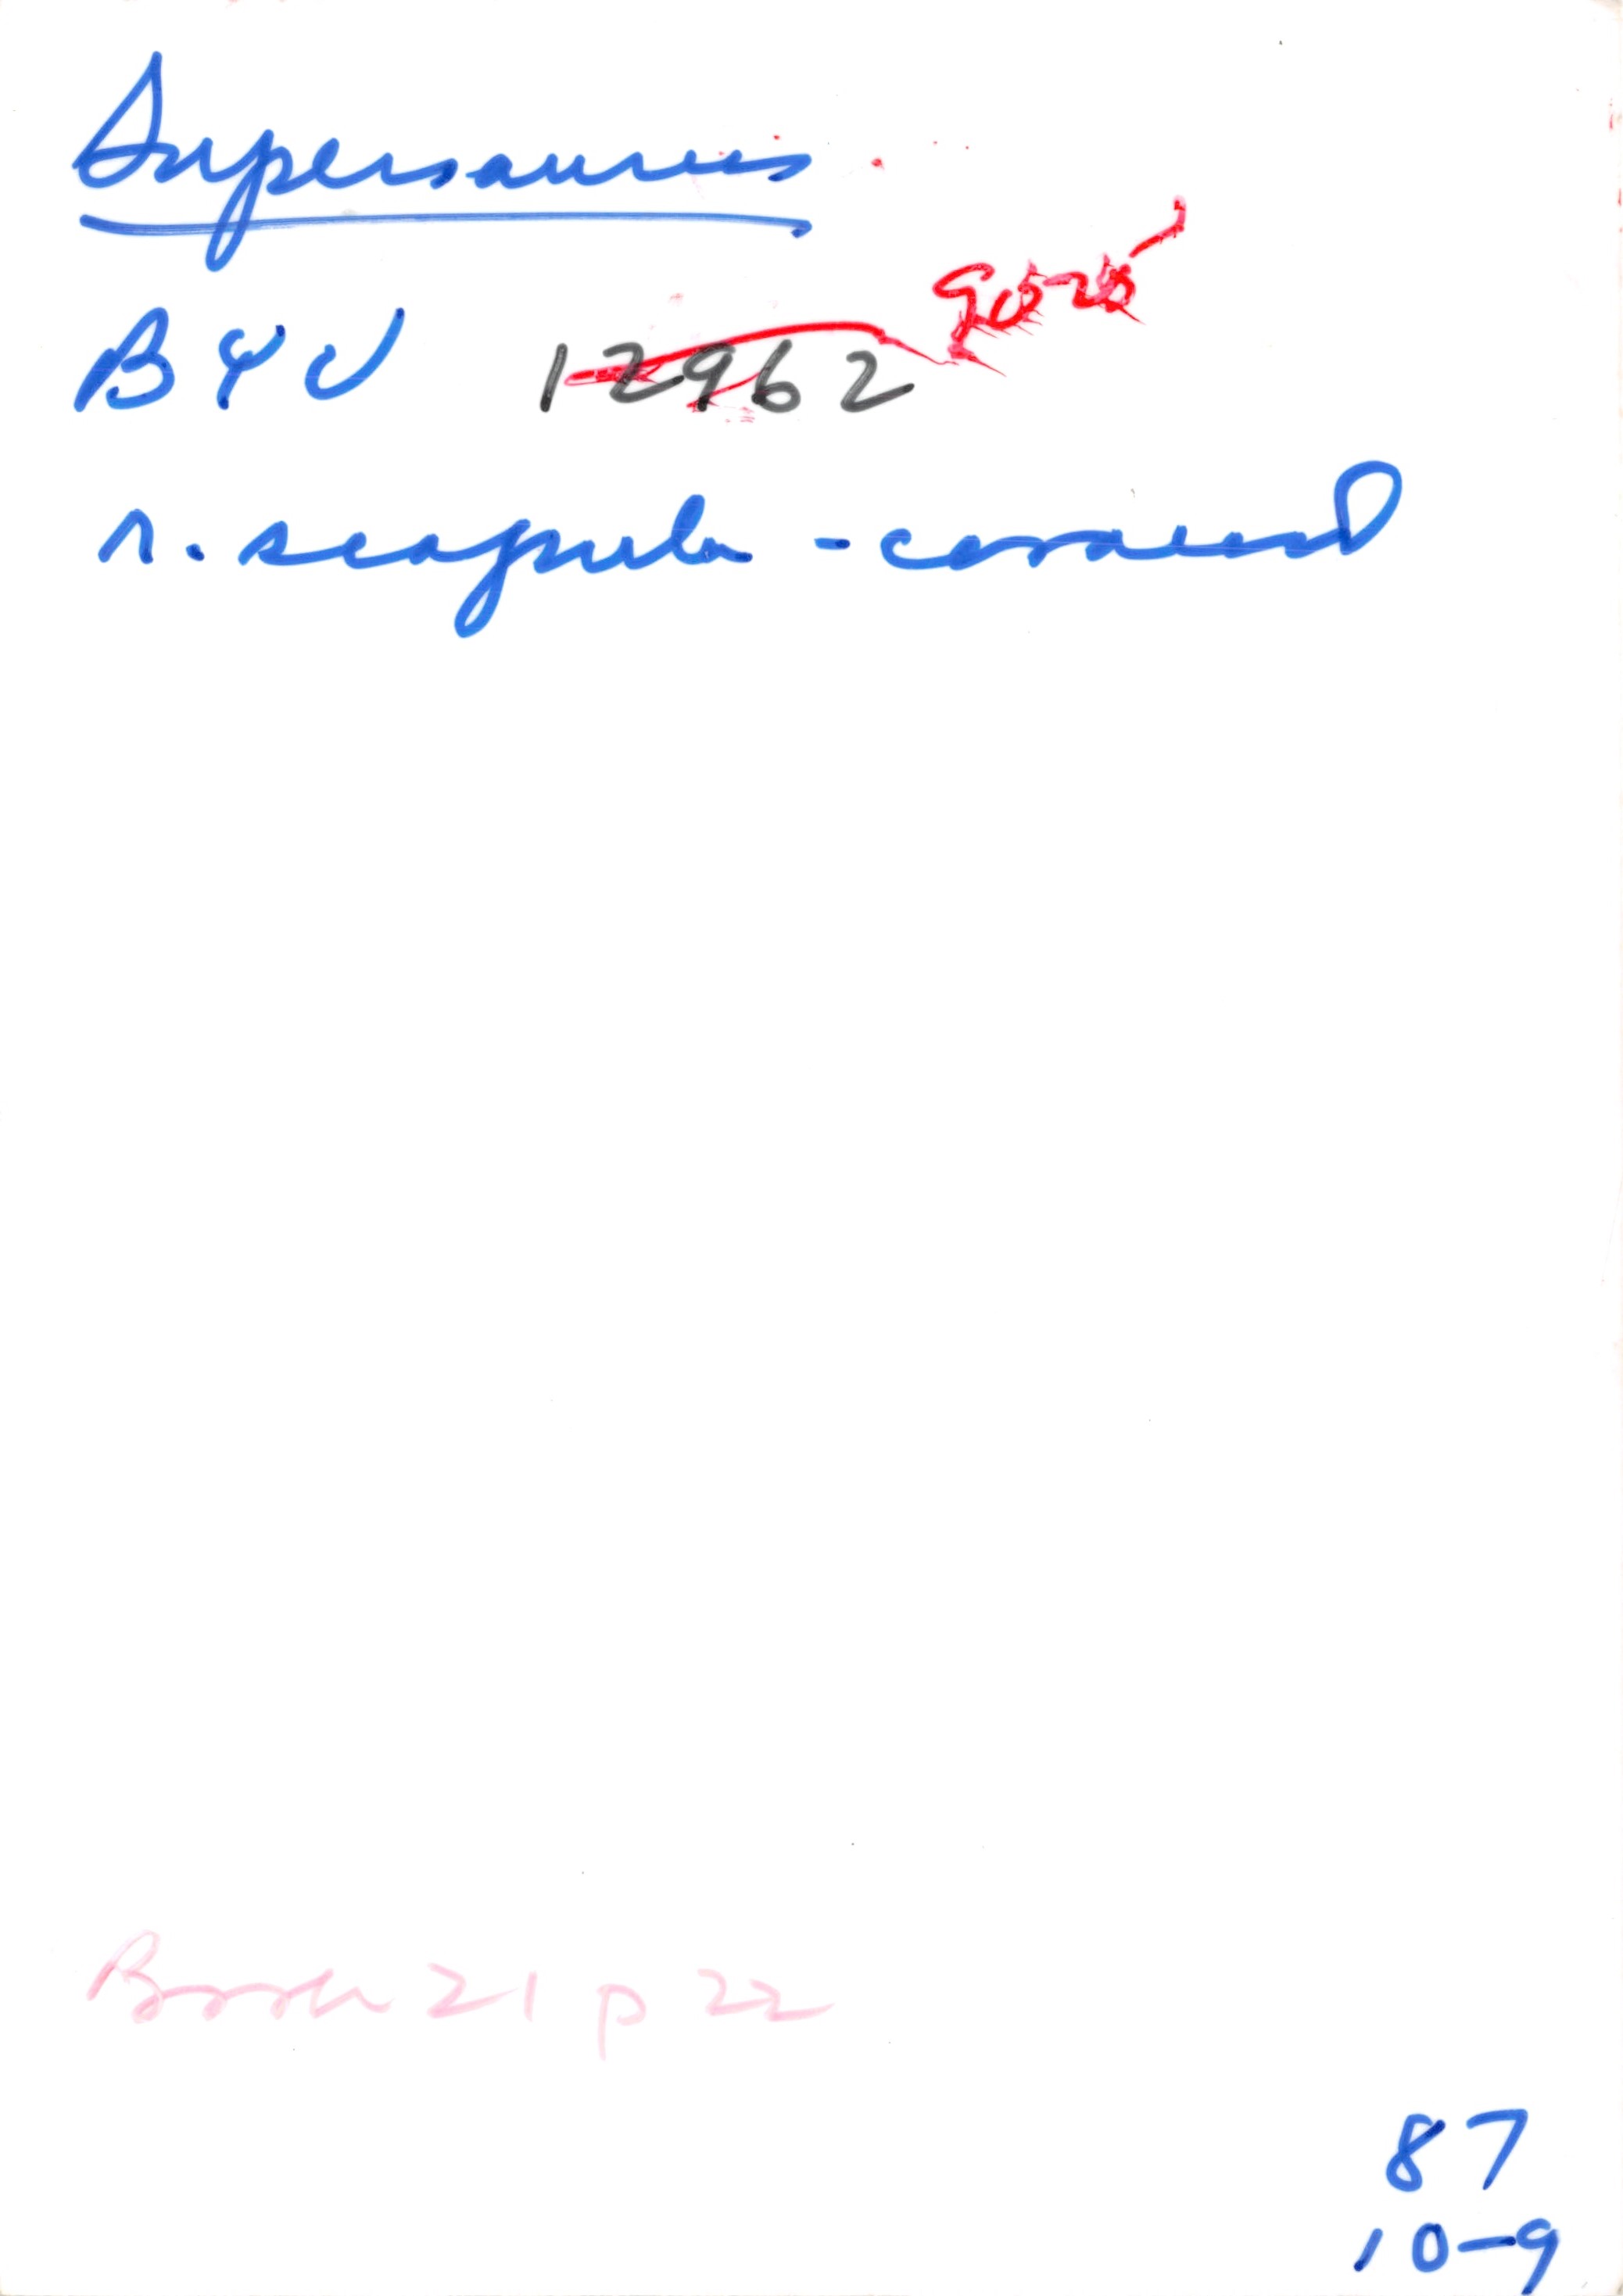 Supersaurus
9025
BYU 12962
r. scapula - coracoid
Book 21 p 22
87
10-9